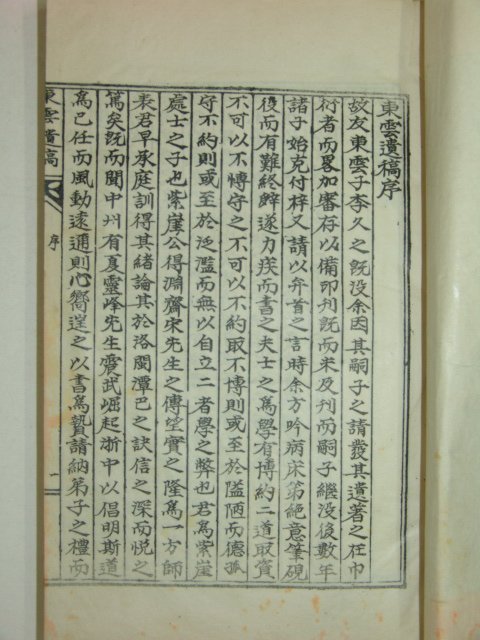 東雲遺稿序
故友東雲子李久之旣沒余因其嗣子之請發其遺著之在巾
衍者而畧加審存以備印刊旣而未及刊而嗣子繼沒後數年
諸子始克付梓又請以弁首之言時余方吟病床第絕意筆硯
後而有難終辭遂力疾而書之夫士之爲學有博約二道取資
不可以不博守之不可以不約取不博則或至於隘陋而德孤
守不約則或至於泛濫而無以自立二者學之弊也君爲紫崖
處士之子也紫崖公得淵齋宋先生之傳望實之隆爲一方師
表君早承庭訓得其緖論其於洛閩潭巴之訣信之深而悅之
篤矣旣而聞中州有夏靈峰先生震武崛起浙中以倡明斯道
爲己任而風動遠邇則心嚮逞之以書爲贄請納弟子之禮而
東雲遺稿
序
一